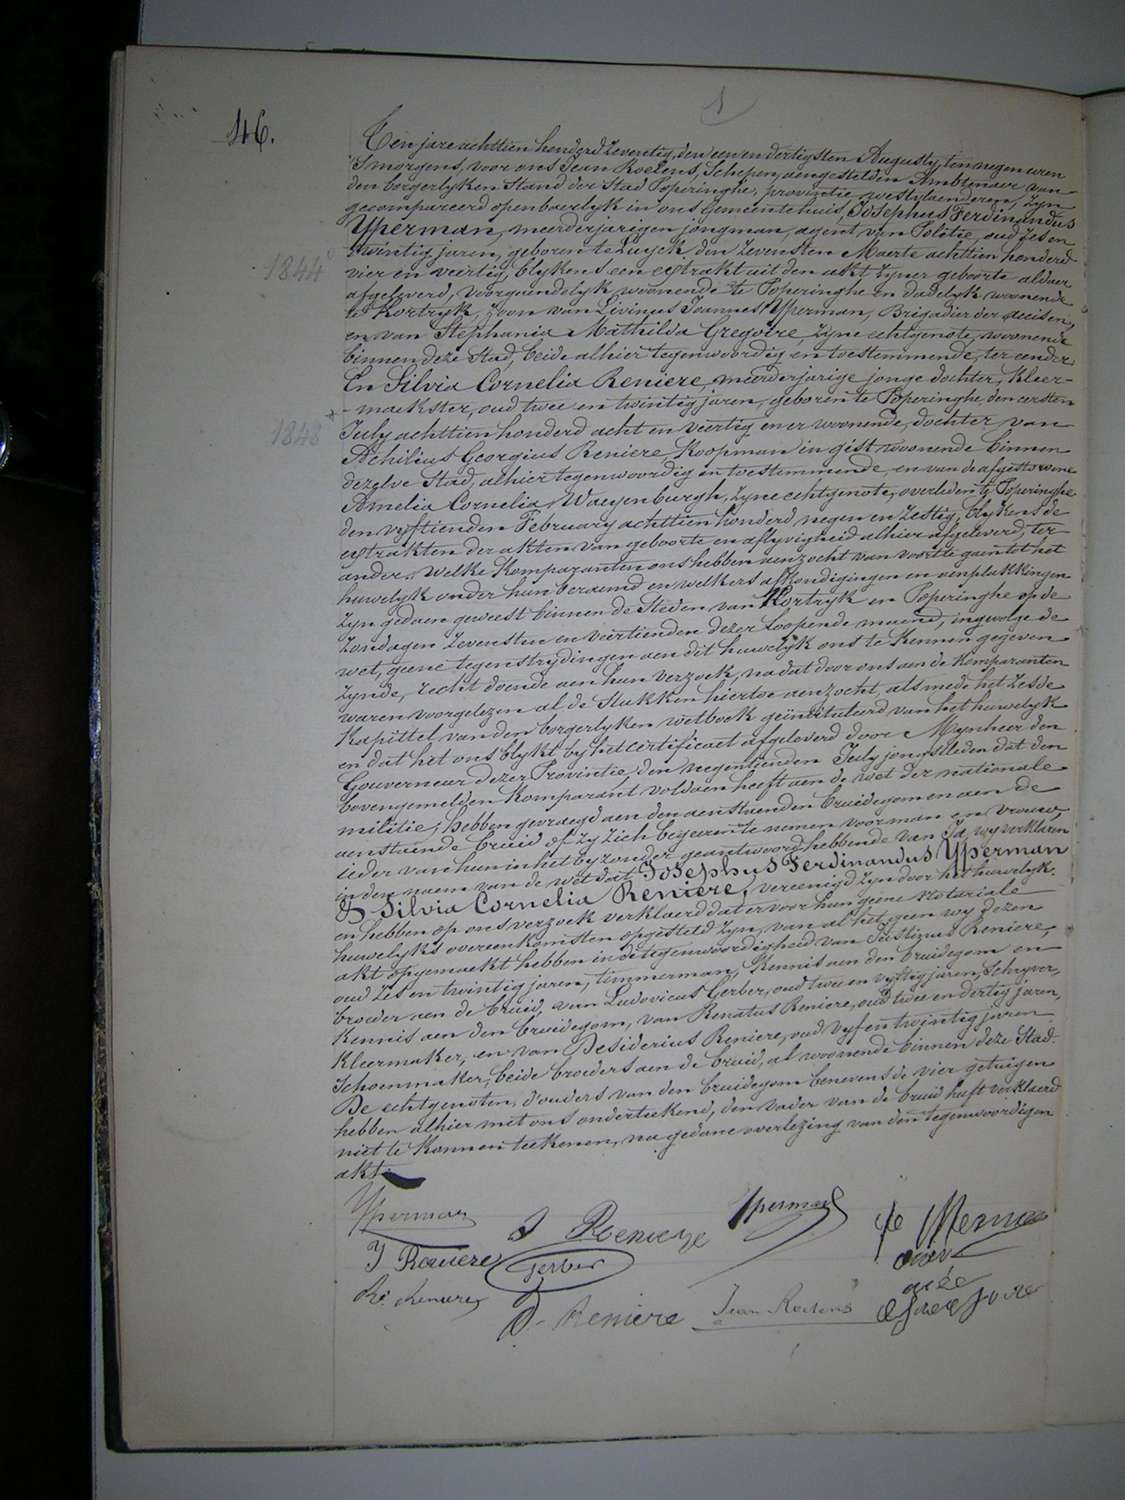 1
46.
Ten jare achttien honderd zeventig, den een en dertigsten Augusty, ten negen uren
'Smorgens, voor ons Jean Roelens, Schepen, aengestelden Ambtenaer van
den borgerlyken Stand der Stad Poperinghe, provintie westvlaenderen, zyn
gecompareerd openbaerlyk in ons Gemeentehuis, Josephus Ferdinandus
Yperman, meerderjarigen jongman, agent van Politie, oud zes en
twintig jaren, geboren te Luyck den zevensten Maerte achttien honderd
1844
vier en veertig, blykens een extrakt uit den akt zyner geboorte aldaer
afgeleverd, voorgaendelyk woonende te Poperinghe en dadelyk woonende
te Kortryk, zoon van Livinus Joannes Yperman, Brigadier der accisen,
en van Stephania Mathilda Gregoire, zyne echtgenote, woonende
binnen deze Stad, beide alhier tegenwoordig en toestemmende, ter eender
En Silvia Cornelia Reniere, meerderjarige jonge dochter, kleer-
-maekster, oud twee en twintig jaren, geboren te Poperinghe, den eersten
1848
July achttien honderd acht en viertig en er woonende, dochter van
Achilius Georgius Reniere, Koopman in gist, woonende binnen
dezelve Stad, alhier tegenwoordig en toestemmende, en van de afgestorvene
Amelia Cornelia Waeyenburgh, zyne echtgenote, overleden te Poperinghe
den vyftienden February achttien honderd negen en zestig, blykens de
extrakten der akten van geboorte en aflyvigheid alhier afgeleverd, ter
ander. Welke Komparanten ons hebben aenzocht van voortte gaen tot het
huwelyk onder hun beraemd en welkers afkondigingen en aenplakkingen
zyn gedaen geweest binnen de Steden van Kortryk en Poperinghe op de
zondagen zevensten en viertienden dezer loopende maend, ingevolge de
wet, geene tegenstrydingen aen dit huwelyk ons te kennen gegeven
zynde, recht doende aen hun verzoek, na dat door ons aen de Komparanten
waren voorgelezen al de Stukken hiertoe aenzocht, als mede het Zesde
Kapittel van den borgerlyken wetboek geïntituleerd van het huwelyk
en dat het ons blykt by het certificaet afgeleverd door Mynheer den
Gouverneur dezer Provintie, den negentienden July jongstleden dat den
bovengemelden Komparant voldaen heeft aen de wet der nationale
militie, hebben gevraegd aen den aenstaenden bruidegom en aen de
aenstaende bruid of zy zich begeeren te nemen voor man en vrouw,
ieder van hun in het byzonder geantwoord hebbende van Ja, wy verklaren
in den naem van de wet dat Josephus Ferdinandus Yperman
& Silvia Cornelia Reniere, vereenigd zyn door het huwelyk.
en hebben op ons verzoek verklaerd dat er voor hun geene notariale
huwelyks overeenkomsten opgesteld zyn, van al het geen wy dezen
akt opgemaekt hebben in de tegenwoordigheid van Justinus Reniere,
oud zes en twintig jaren, timmerman, Kennis aen den bruidegom en
broeder aen de bruid, van Ludovicus Gerber, oud twee en vyftig jaren, Schryver,
Kennis aen den bruidegom, van Renatus Reniere, oud twee en dertig jaren,
Kleermaker, en van Desiderius Reniere, oud vyf en twintig jaren
Schoenmaker, beide broeders aen de bruid, al woonende binnen deze Stad.
De echtgenoten, d'ouders van den bruidegom benevens de vier getuigen
hebben alhier met ons onderteekend, den vader van de bruid heeft verklaerd
niet te konnen teekenen, na gedane overlezing van den tegenwoordigen
akt.
Yperman S Reniere Yperman
J Reniere Gerber
Re. Reniere
D. Reniere Jean Roelens